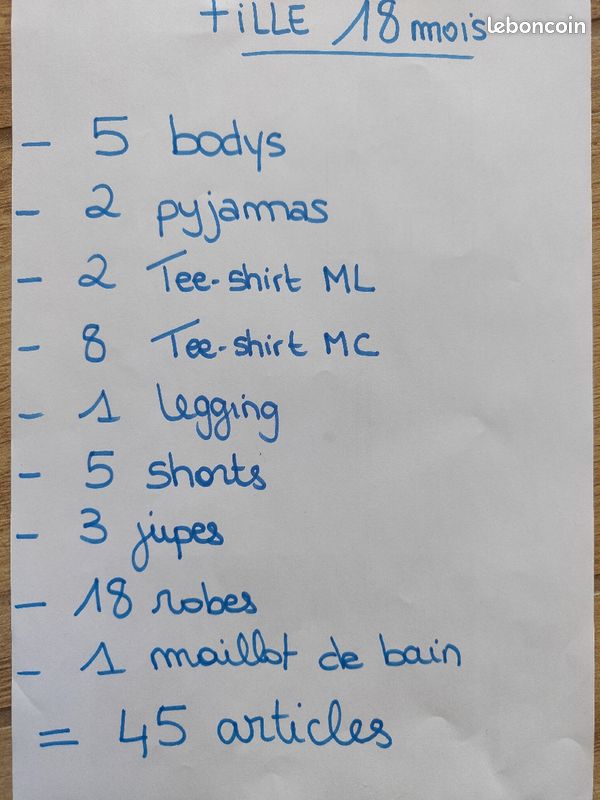 FiLLE 18 mois
leboncoin
- 5 bodys
- 2 pyjammas
- 2 Tee-shirt ML
- 8 Tee-shirt MC
- 1 legging
- 5 shorts
- 3 jupes
- 18 robes
- 1 maillot de bain
= 45 articles